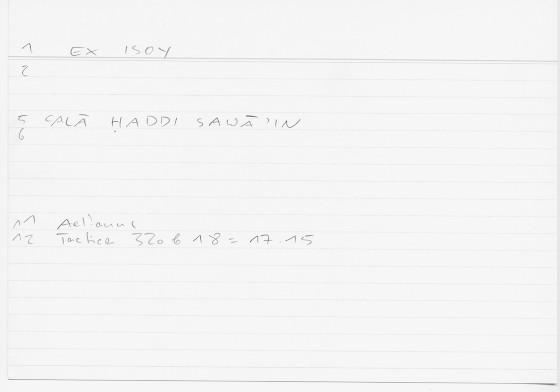 1 EX ISOY
2
5 ʿALĀ ḤADDI SAWĀʾIN
6
11 Aelianus
12 Tactica 320 b 18 = 17.15